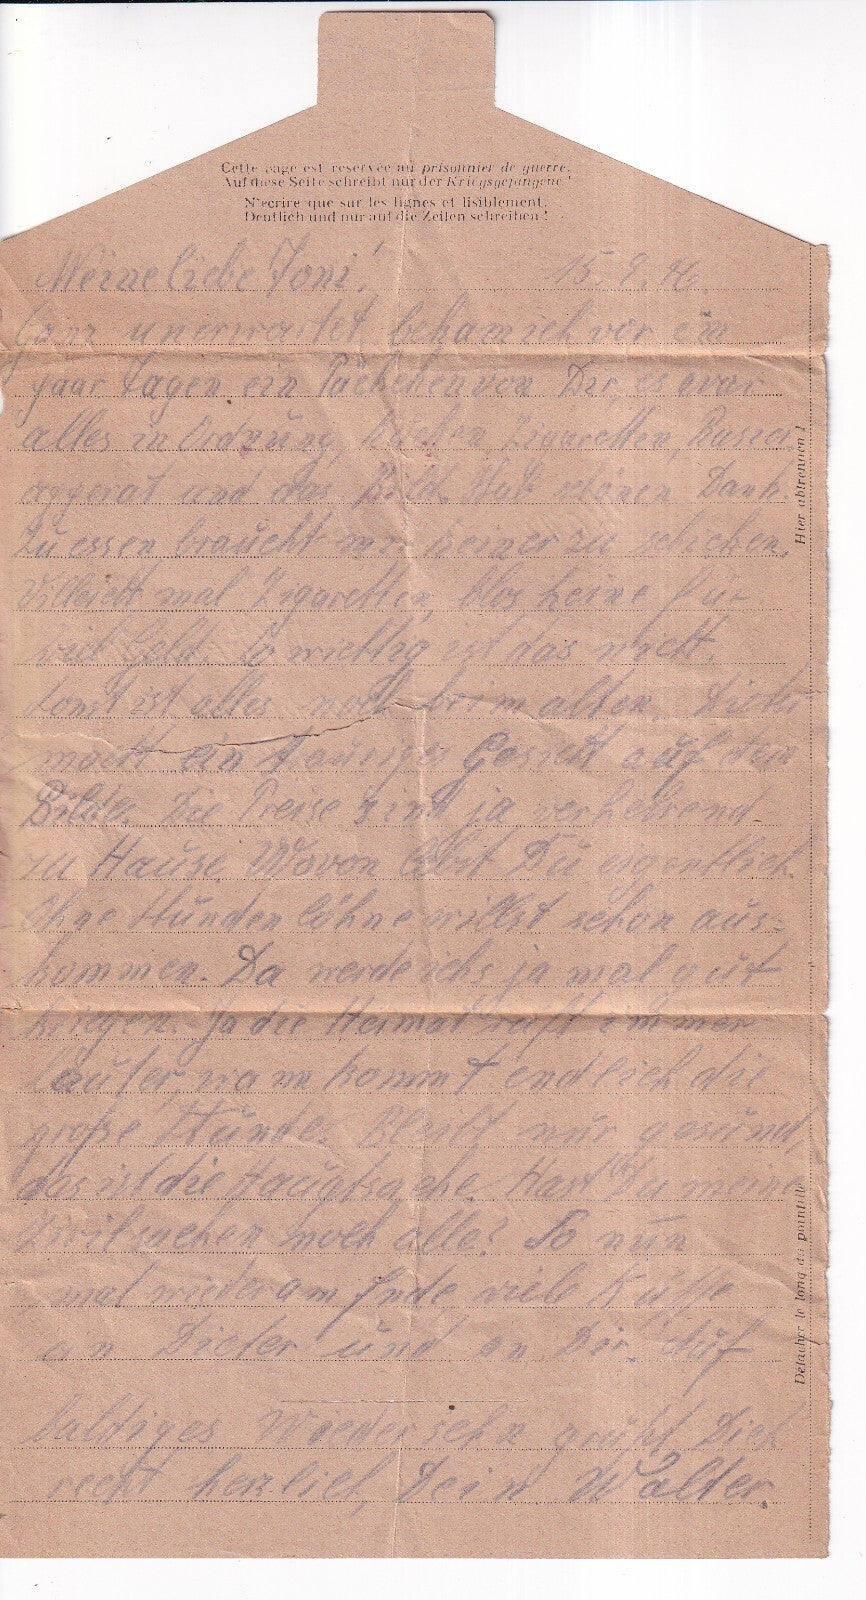 Cette page est reservée au prisonnier de guerre.
Auf diese Seite schreibt nur der Kriegsgefangene!
N'ecrire que sur les lignes et lisiblement.
Deutlich und nur auf die Zeilen schreiben!
Meine liebe Toni! 15.9.46.
Ganz unerwartet bekam ich vor ein
paar Tagen ein Päckchen von Dir, es war
alles in Ordnung, Kuchen, Zigaretten, Rasier
apperat und das Bild. Hab schönen Dank.
Zu essen braucht mir keiner zu schicken.
Villeicht mal Zigaretten, blos keine für
viel Geld. So wichtig ist das nicht.
Sonst ist alles noch beim alten. Dieter
macht ein trauriges Gesicht auf dem
Bilde. Die Preise sind ja verheerend
zu Hause. Wovon lebst Du eigentlich.
Ohne Stundenlöhne willst schon aus-
kommen. Da werde ichs ja mal gut
kriegen. Ja die Heimat ruft immer
lauter, wann kommt endlich die
große Stunde. Bleibt nur gesund,
das ist die Hauptsache. Hast Du meine
Zivilsachen noch alle? So nun
mal wieder am Ende, viele Küße
an Dieter und an Dir. Auf
baldiges Wiedersehn grüßt Dich
recht herzlich, Dein Walter.
Hier abtrennen!
Détacher le long du pointillé